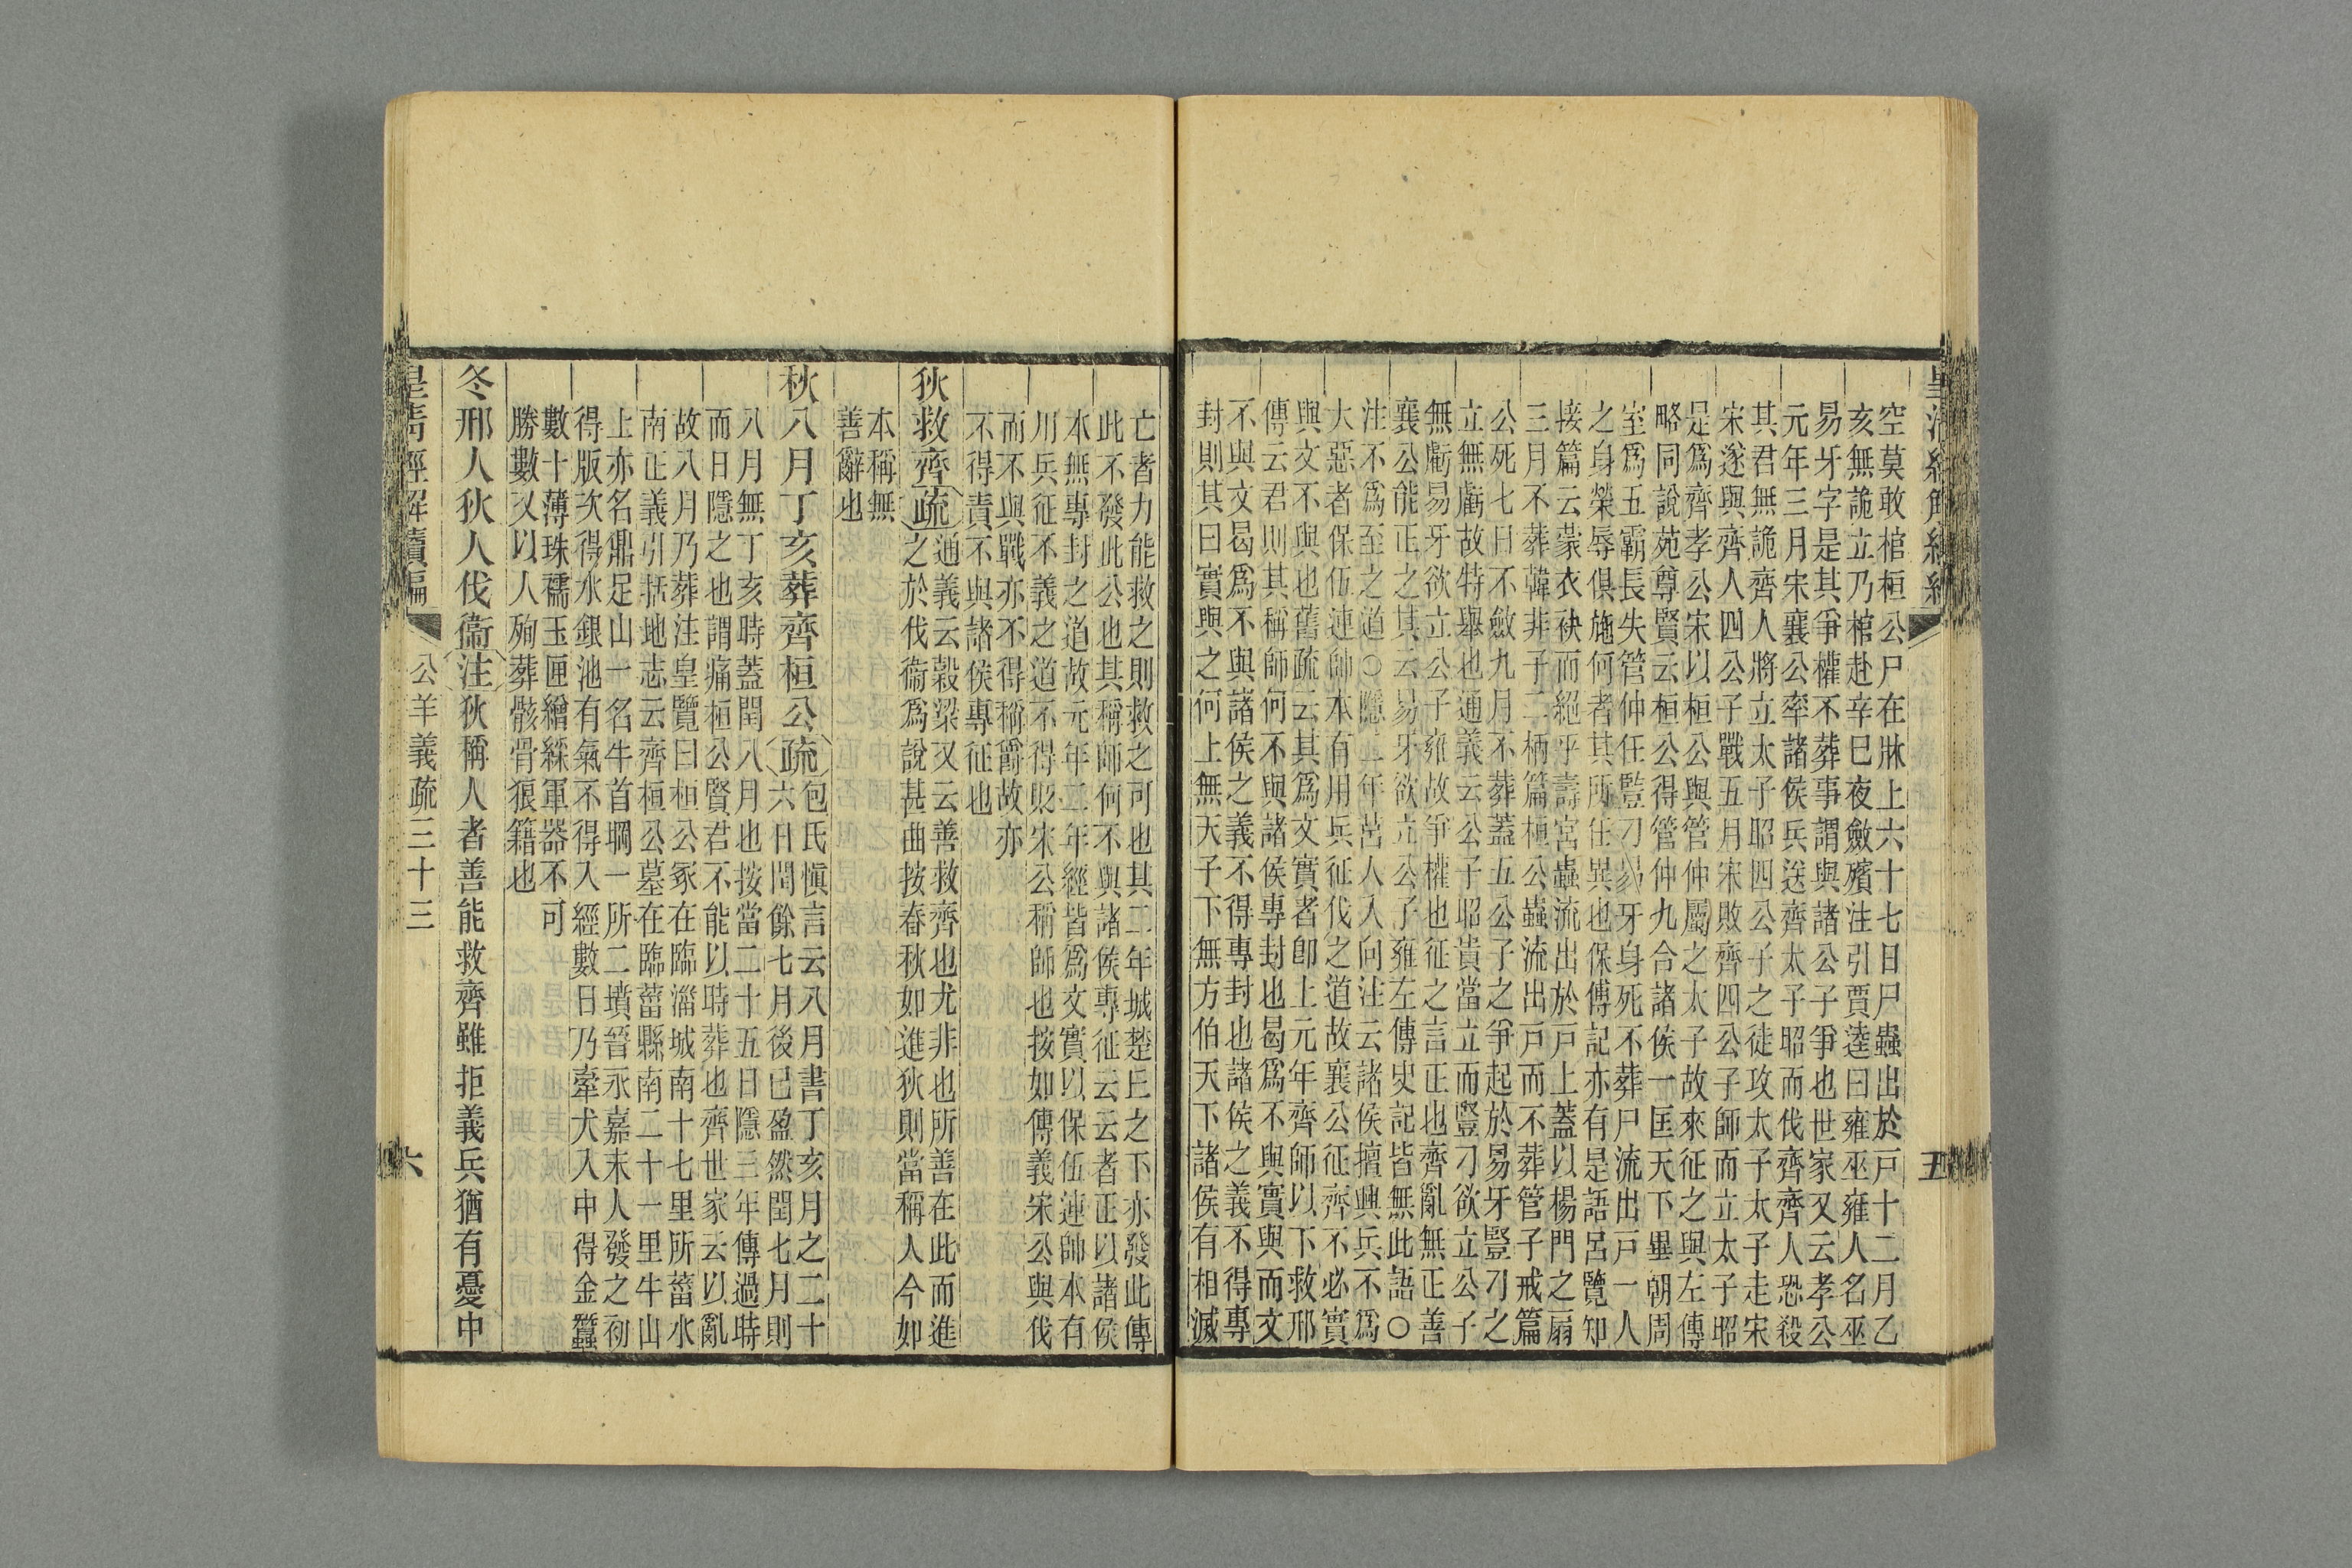 空莫敢棺桓公尸在牀上六十七日尸蟲出於戸十二月乙
亥無詭立乃棺赴辛巳夜斂殯注引賈逵曰雍巫雍人名巫
易牙字是其爭權不葬事謂與諸公子爭也世家又云孝公
元年三月宋襄公率諸侯兵送齊太子昭而伐齊齊人恐殺
其君無詭齊人將立太子昭四公子之徒攻太子太子走宋
宋遂與齊人四公子戰五月宋敗齊四公子師而立太子昭
是爲齊孝公宋以桓公與管仲屬之太子故來征之與左傳
略同說苑尊賢云桓公得管仲九合諸侯一匡天下畢朝周
室爲五霸長失管仲任豎刁易牙身死不葬尸流出戸一人
之身榮辱俱施何者其所任異也保傅記亦有是語呂覽知
接篇云蒙衣袂而絕乎壽宮蟲流出於戸上蓋以楊門之扇
三月不葬韓非子二柄篇桓公蟲流出戸而不葬管子戒篇
公死七日不斂九月不葬蓋五公子之爭起於易牙豎刁之
立無虧故特舉也通義云公子昭貴當立而豎刁欲立公子
無虧易牙欲立公子雍故爭權也征之言正也齊亂無正善
襄公能正之其云易牙欲立公子雍左傳史記皆無此語○
注不爲至之道○隱二年莒人入向注云諸侯擅興兵不爲
大惡者保伍連帥本有用兵征伐之道故襄公征齊不必實
與文不與也舊疏云其爲文實者卽上元年齊師以下救邢
傳云君則其稱師何不與諸侯專封也曷爲不與實與而文
不與文曷爲不與諸侯之義不得專封也諸侯之義不得專
封則其曰實與之何上無天子下無方伯天下諸侯有相滅
五
亡者力能救之則救之可也其二年城楚丘之下亦發此傳
此不發此公也其稱師何不與諸侯專征云云者正以諸侯
本無專封之道故元年二年經皆爲文實以保伍連帥本有
用兵征不義之道不得貶宋公稱師也按如傳義宋公與伐
而不與戰亦不得稱爵故亦
不得責不與諸侯專征也
狄救齊疏通義云穀梁又云善救齊也尤非也所善在此而進
之於伐衞爲說甚曲按春秋如進狄則當稱人今如
本稱無
善辭也
秋八月丁亥葬齊桓公疏包氏愼言云八月書丁亥月之二十
六日閒餘七月後已盈然閏七月則
八月無丁亥時蓋閏八月也按當二十五日隱三年傳過時
而日隱之也謂痛桓公賢君不能以時葬也齊世家云以亂
故八月乃葬注皇覽曰桓公冢在臨淄城南十七里所菑水
南正義引括地志云齊桓公墓在臨菑縣南二十一里牛山
上亦名鼎足山一名牛首堈一所二墳晉永嘉末人發之初
得版次得水銀池有氣不得入經數日乃牽犬入中得金蠶
數十薄珠襦玉匣繒綵軍器不可
勝數又以人殉葬骸骨狼籍也
冬邢人狄人伐衞注狄稱人者善能救齊雖拒義兵猶有憂中
皇清經解續編
公羊義疏三十三
六